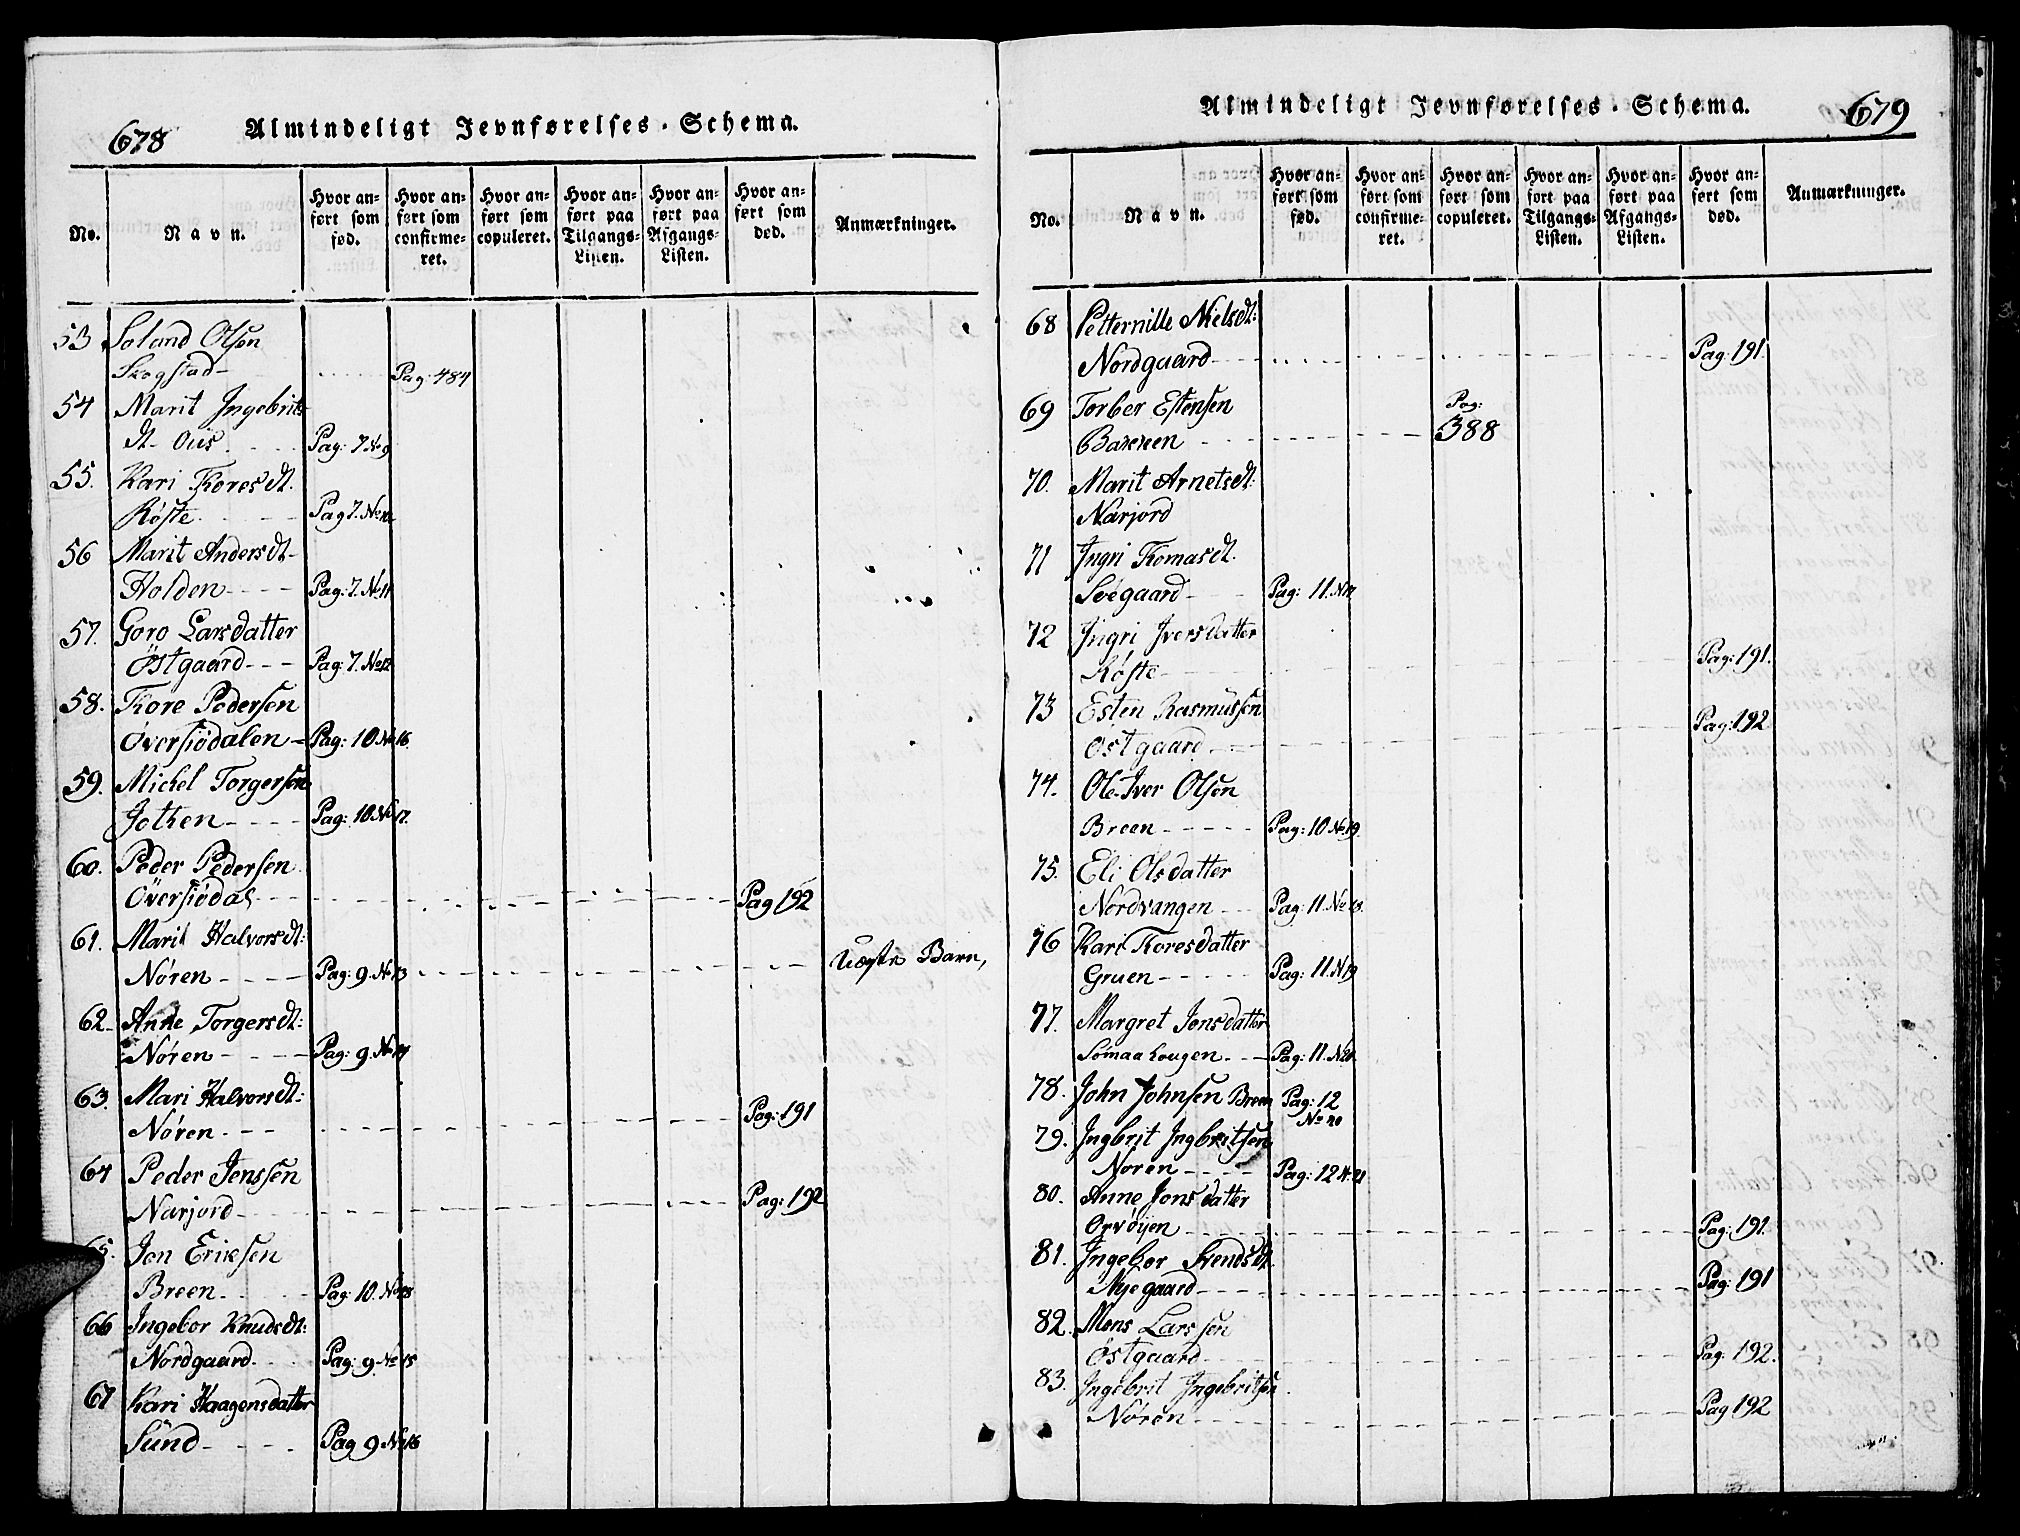 678 Almindeligt Jevnførelses-Schema.
No. Navn. Hvor anført som fød. Hvor anført som confirmeret. Hvor anført som copuleret. Hvor anført paa Tilgangs-Listen. Hvor anført paa Afgangs-Listen. Hvor anført som død. Anmærkninger.
53 Soland Olsen
Skogstad Pag: 484
54 Marit Ingebrits
dt- Ous Pag: 7 No 9
55. Kari Thoresdt.
Røste Pag 7. No 10
56 Marit Andersdt-
Holden Pag: 7. No 11
57. Goro Larsdatter
Östgaard Pag: 7. No 12
58. Thore Pedersen
Óversiødalen Pag: 10 No 16.
59. Michel Torgersen
Jothen Pag: 10 No 17.
60. Peder Pedersen
Översiødal Pag 192
61. Marit Halvorsdt:
Nøren Pag: 9. No 13 Uægte Barn,
62. Anne Torgersdt:
Nøren Pag: 9. No 14
63. Mari Halvorsdt:
Nøren Pag: 191
64 Peder Jenssen
Narjord Pag: 192
65. Jon Eriksen
Breen Pag: 10. No 18
66 Ingebor Knudsdt:
Nordgaard Pag: 9 No 15
67 Kari Haagensdatter
Sund Pag 9 No 16
Almindeligt Jevnførelses-Schema. 679
No. Navn. Hvor anført som fød. Hvor anført som confirmeret. Hvor anført som copuleret. Hvor anført paa Tilgangs-Listen. Hvor anført paa Afgangs-Listen. Hvor anført som død. Anmærkninger.
68 Petternille Nielsdt:
Nordgaard Pag: 191.
69 Torber Estensen Pag:
Bakken 388
70. Marit Arnetsdt:
Narjord
71 Ingri Thomasdt.
Søegaard Pag: 11. No 17
72 Ingri Iversdatter
Røste Pag: 191.
73 Esten Rasmussen
Ostgaard Pag: 192
74. Ole Iver Olsen
Breen Pag: 10 No 19.
75. Eli Olsdatter
Nordvangen Pag: 11. No 18.
76 Kari Thoresdatter
Gruen Pag: 11. No 19
77. Margret Jonsdatter
Sømaa Lougen Pag: 11. No 20.
78. John Johnsen Breen Pag: 12
No 20
79. Ingbrit Ingbritsen
Noren Pag: 12 N. 21
80. Anne Jonsdatter
Orvöijen Pag: 191.
81. Ingebor Svendsdt.
Nyegaard Pag: 191
82. Mons Larssen
Østgaard Pag: 192.
83. Ingebrit Ingebritsen.
Nøren Pag 192